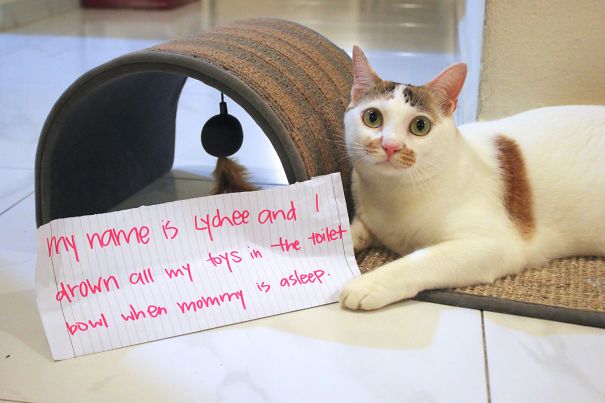 my name is Lychee and I
drown all my toys in the toilet
bowl when mommy is asleep.